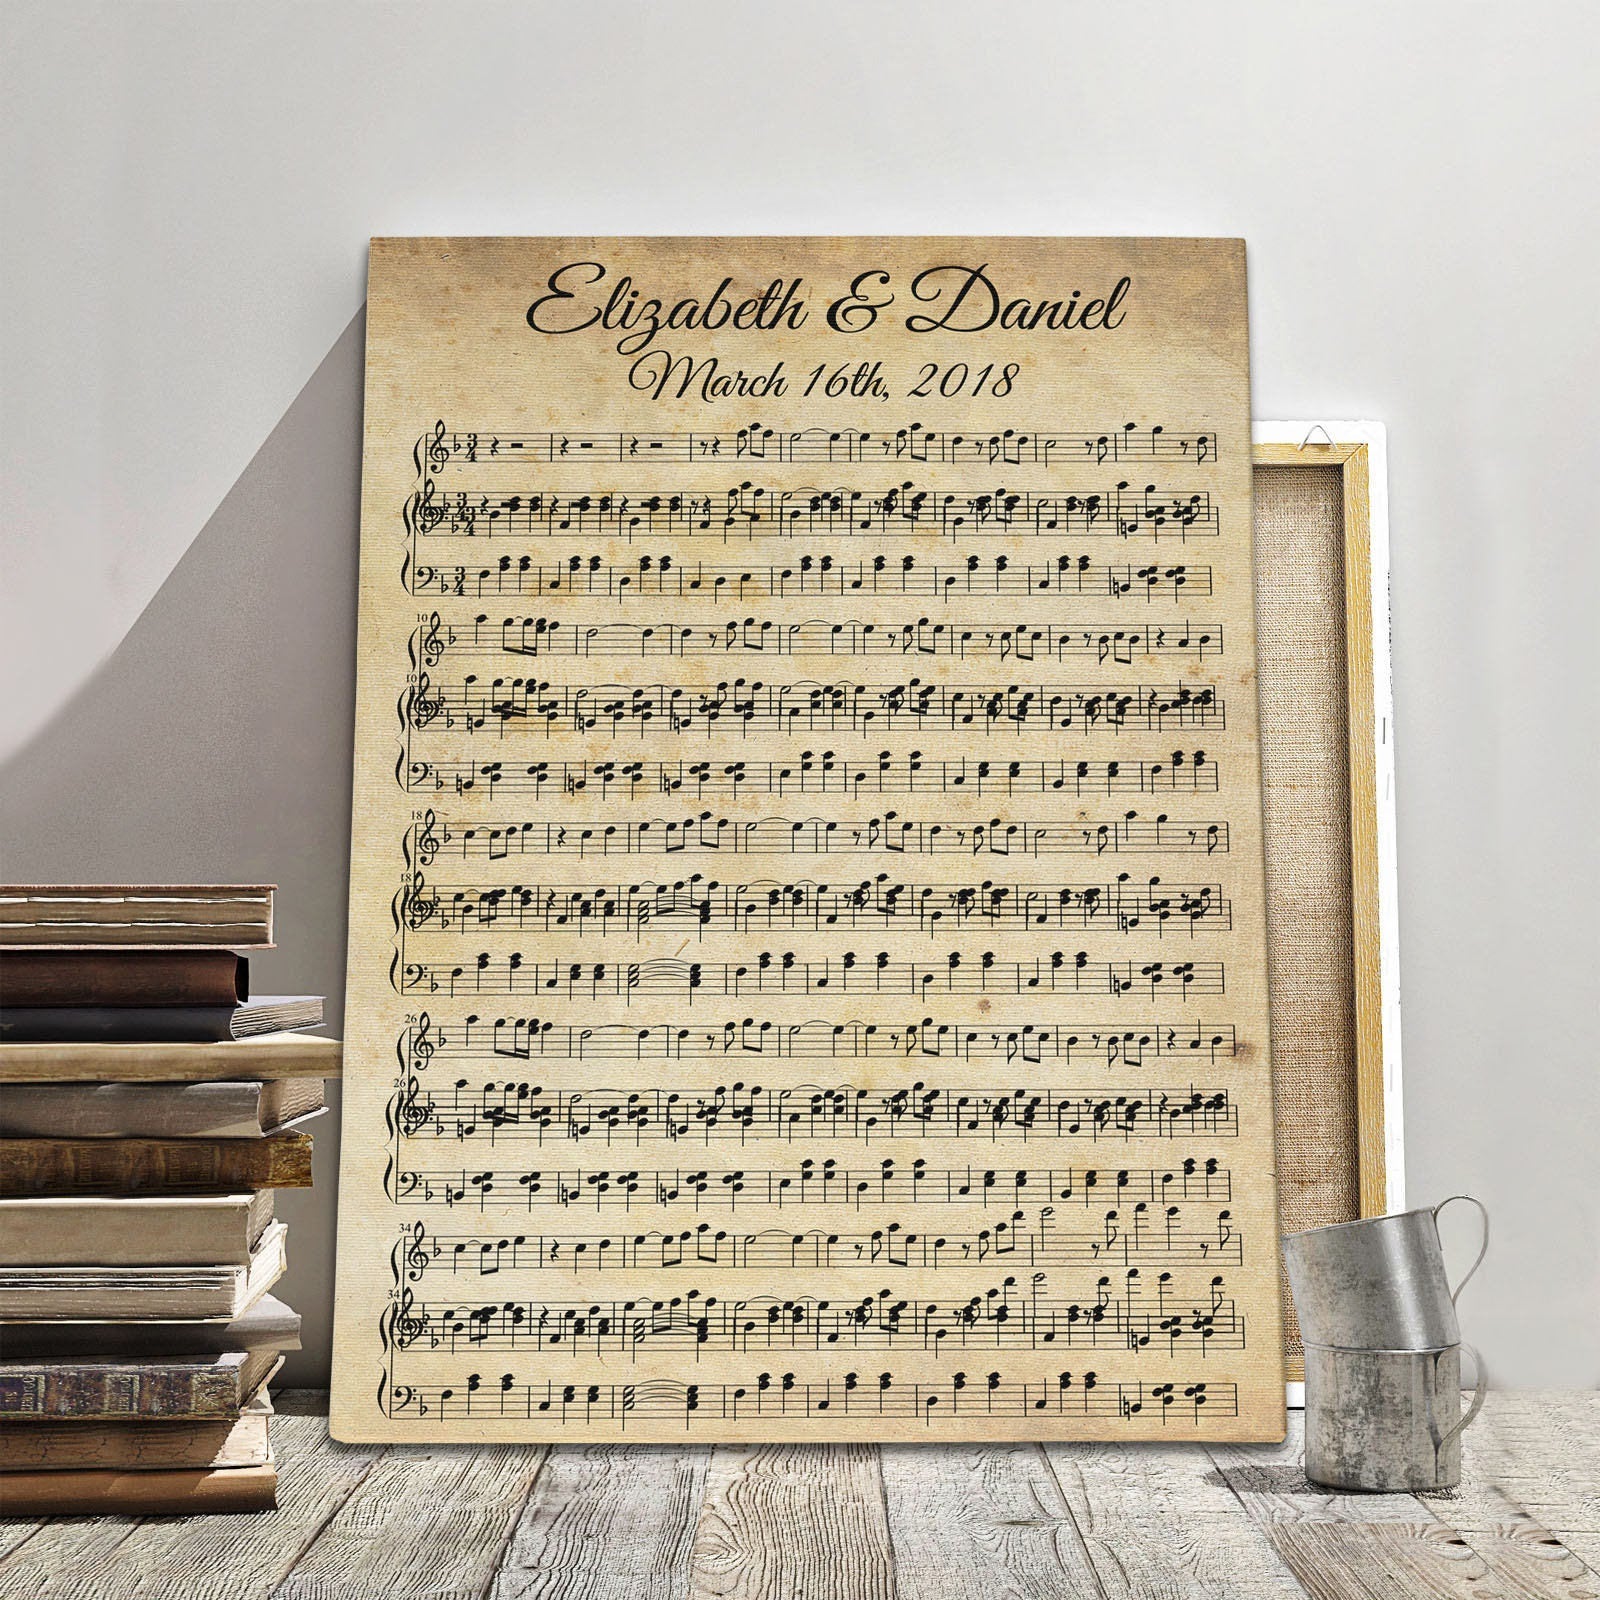 Elizabeth & Daniel
March 16th, 2018
3
4
3
4
3
4
3
4
10
10
18
18
26
26
34
34